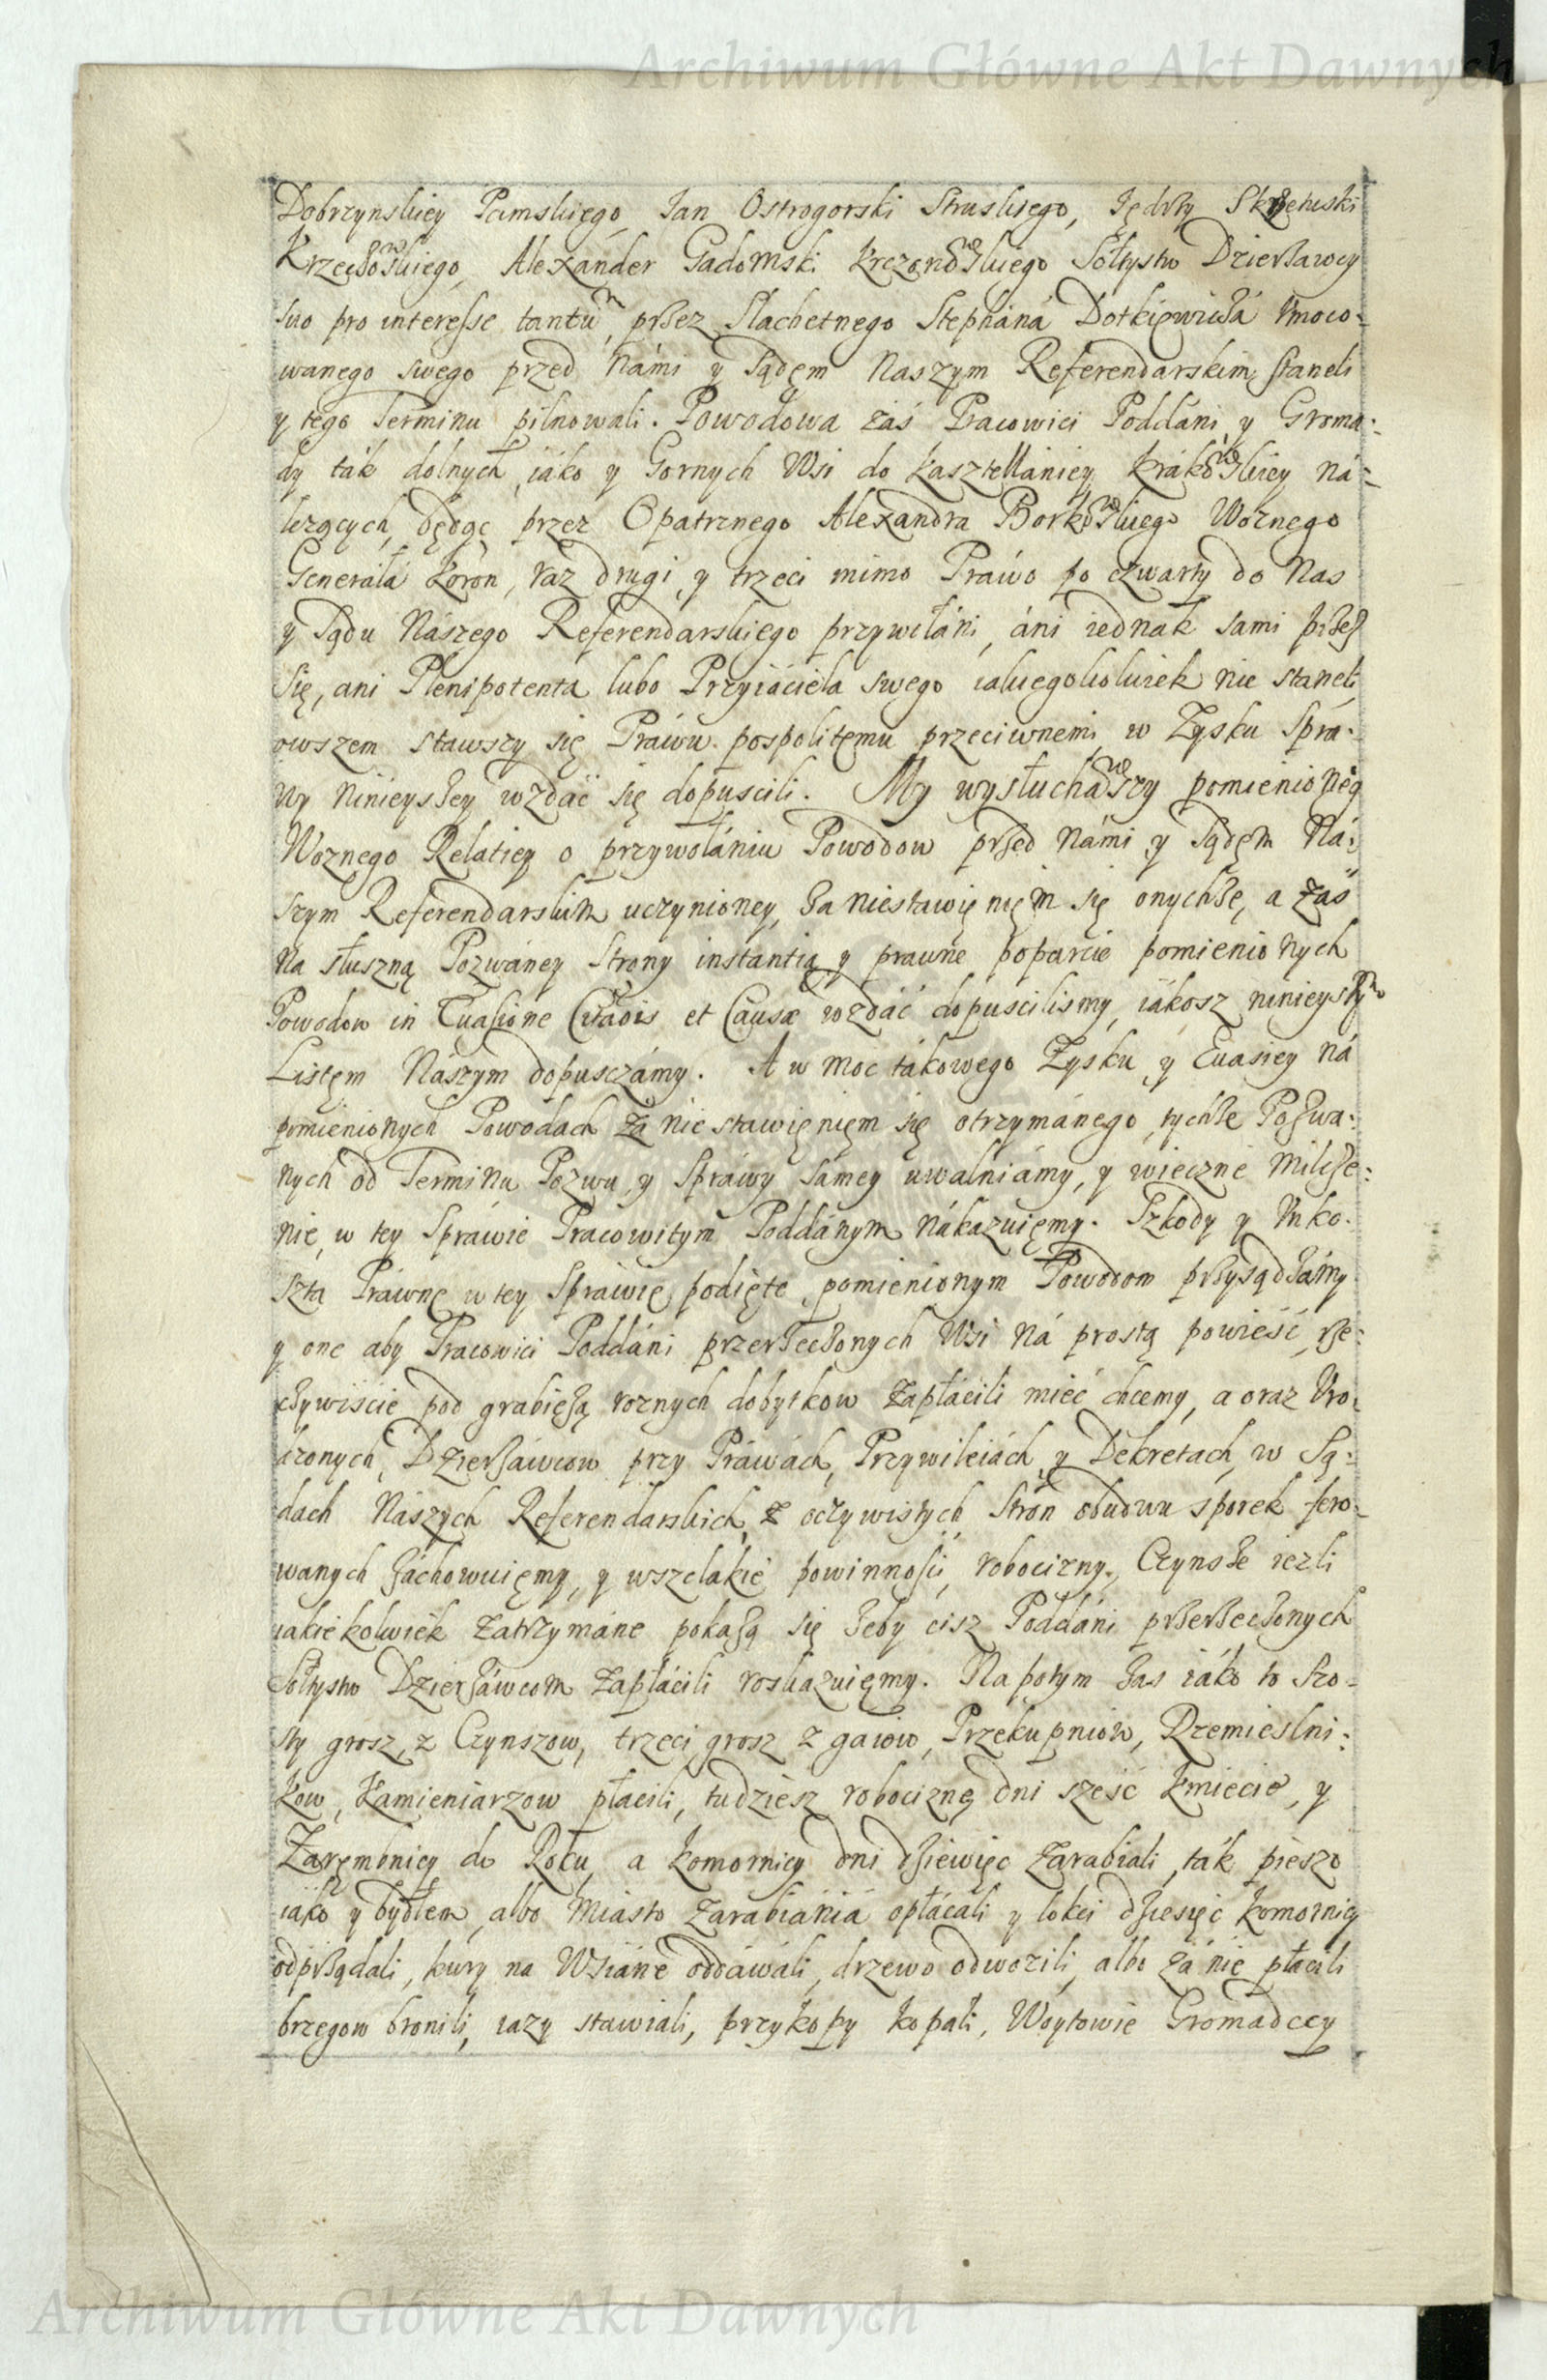 Archiwum Główne Akt Dawnych
Dobrzynskiey Pcimskiego, Ian Ostrogorski Struskiego, Jędrzy Skrzetuski
Krzeczowskiego, Alexánder Gadomski Krczonowskiego Sołtystw Dzierżawcy
suo pro interesse tantũ, przez Slachetnego Stephána Dotkiewicza Vmoco-
wanego swego przed Námi y Sądem Naszym Referendarskim staneli
y tego Terminu pilnowali. Powodowa záś Pracowici Poddáni y Groma-
dy ták dolnych, iáko y Gornych Wsi do Kasztellániey Krákowskiey ná-
lezących, będąc przez Opatrznego Alexandra Borkowskiego Woznego
Generáłá Koron, raz drugi y trzeci mimo Práwo po czwarty do Nas
y Sądu Nászego Referendarskiego przywołáni, áni iednak sami przez
Się, ani Plenipotenta lubo Przyiáciela swego iakiegokolwiek nie staneli
owszem stawszy się Práwu pospolitemu przeciwnemi, w Zysku Sprá-
wy ninieyszey wzdać się dopuscili. My wysłuchawszy pomienioneg
Woznego Relatiey o przywołániu Powodow przed Námi y Sądem Ná-
szym Referendarskim uczynioney, za niestawięnięm się onychże, a záś
na słuszną Pozwáney Strony instantią y prawne poparcie pomienionych
Powodow in Euasione Cittaois et Causæ wzdáć dopuscilismy, iákosz ninieyszym
Listęm Nászym dopusczámy. A w moc tákowego Zysku y Euasiey ná
pomienionych Powodach zá nie stawięnięm się otrzymánego, tychże Pozwa-
nych od Terminu Pozwu y Spráwy sámey uwalniámy, y wieczne milcze-
nie, w tey Spráwie Pracowitym Poddánym nákazuięmy. Szkody y Vnko-
szta Práwne w tey Spráwie podięte, pomienionym Powodom przysądzámy
y one aby Pracowici Poddáni przerzeczonych Wsi ná prostą powieść, rze-
czywiście pod grabieżą roznych dobytkow zapłácili mieć chcemy, a oraz Vro-
dzonych Dzierżáwcow przy Práwách, Przywileiách y Dekretach, w Są-
dach Nászych Referendarskich z oczywistych Stron obudwu sporek fero-
wanych záchowuięmy, y wszelakie powinności, robocizny, Czynsze iezli
iakiekolwiek zatrzymáne pokażą się żeby cisz Poddáni przerzeczonych
Sołtystw Dzierżáwcom zapłácili roskazuięmy. Na potym zas iáko to szo-
sty grosz z Czynszow, trzeci grosz z gaiow, Przekupniow, Rzemieslni-
kow, Kamieniarzow płacili, tudziesz robociznę dni sześć Kmiecie, y
Zarębnicy do Roku, a Komornicy dni dziewięc zarabiali, ták pieszo
iáko y bydłem, albo miasto zarabiániá opłácáli y łokci dziesięć Komornicy
odprzędali, kury na Wsiáne oddáwáli, drzewo odwozili, albo zá nie płacili
brzegow bronili, iazy stawiali, przykopy kopali, Woytowie Gromadccy
Archiwum Główne Akt Dawnych